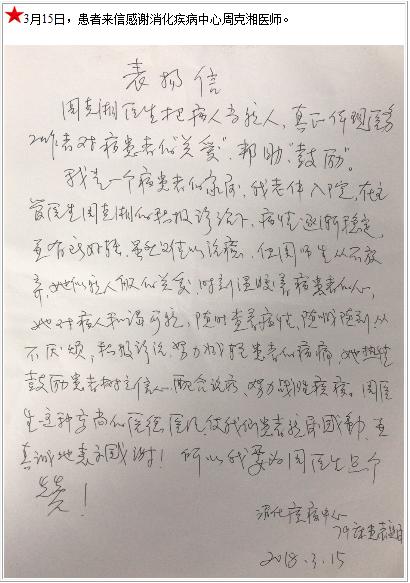 3月15日，患者来信感谢消化疾病中心周克湘医师。
表扬信
周克湘医生把病人当亲人，真正体现医务
工作者对病患者的"关爱"，帮助，"鼓励"。
我是一个病患者的家属，我老伴入院，在主
管医生周克湘的积极诊治下，病情逐渐稳定，
并有所好转，虽然 但周医生从不放
弃，她似亲人般的关爱时刻温暖着病患者的心，
她对病人和蔼可亲，随时查看病情，随时随到从
不厌烦，积极诊治，努力减轻患者的病痛，她热情
鼓励患者树立信心，配合诊疗，努力战胜疾病。周医
生这种高尚的医德医风，使我们患者家属感动，并
真诚地表示感谢！所以我要为周医生点个
赞！
消化疾病中心
患者家属
2018.3.15